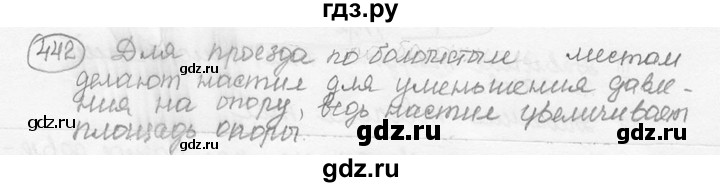 гдз.ру
442 Для проезда по болотистым местам
делают настил для уменьшения давле-
ния на опору, ведь настил увеличивает
площадь опоры.
gdz.ru
gdz.ru